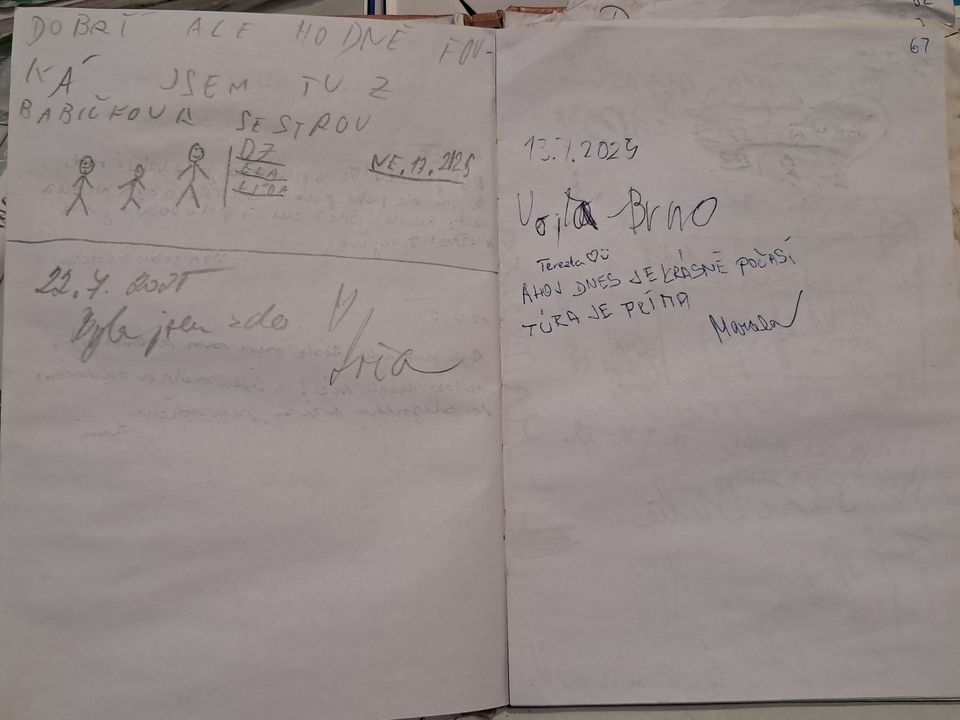 DOBRÍ ALE HODNĚ FOU-
KÁ JSEM TU Z
BABIČKOU A SESTROU
DJ
ELA
LÍDA
NE, 13, 2025
22. 7. 2025
Byla jsem zde
13.7.2025
Vojta Brno
Terezka ♡
AHOJ DNES JE KRÁSNÉ POČASÍ
TÚRA JE PRÍMA
67